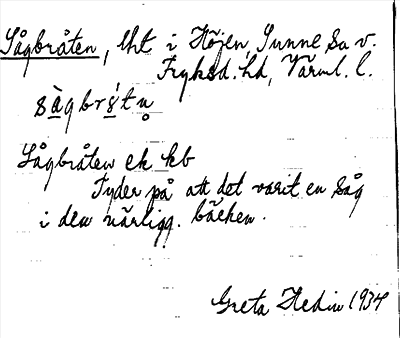 Sågbråten, lht i Höjen, Sunne Sn v.
Fryksd. hd, Värml. l.
Sågbråten ek kb
Tyder på att det varit en såg
i den närligg. bäcken.
Greta Hedin 1934